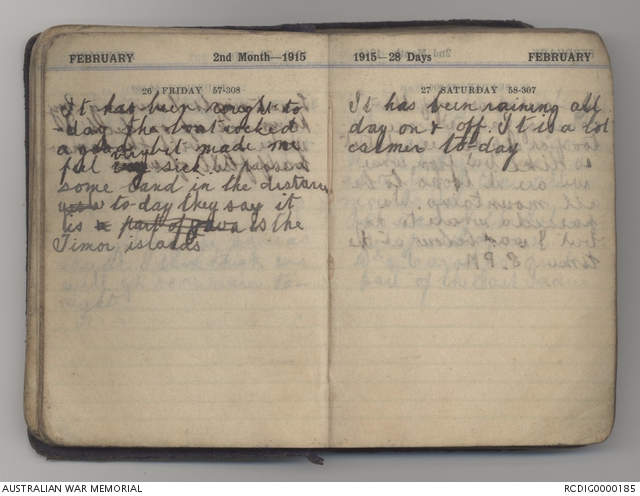 FEBRUARY 2nd Month—1915
26 FRIDAY 57-308
It has been rought to
-day the boat rocked
a good bit made me
feel very sick w passed
some land in the distance
to-day they say it
is a part of Java Is the
Timor islands
1915—28 Days FEBRUARY
27 SATURDAY 58-307
It has been raining all
day on & off. It is a lot
calmer to-day
AUSTRALIAN WAR MEMORIAL
RCDIG0000185